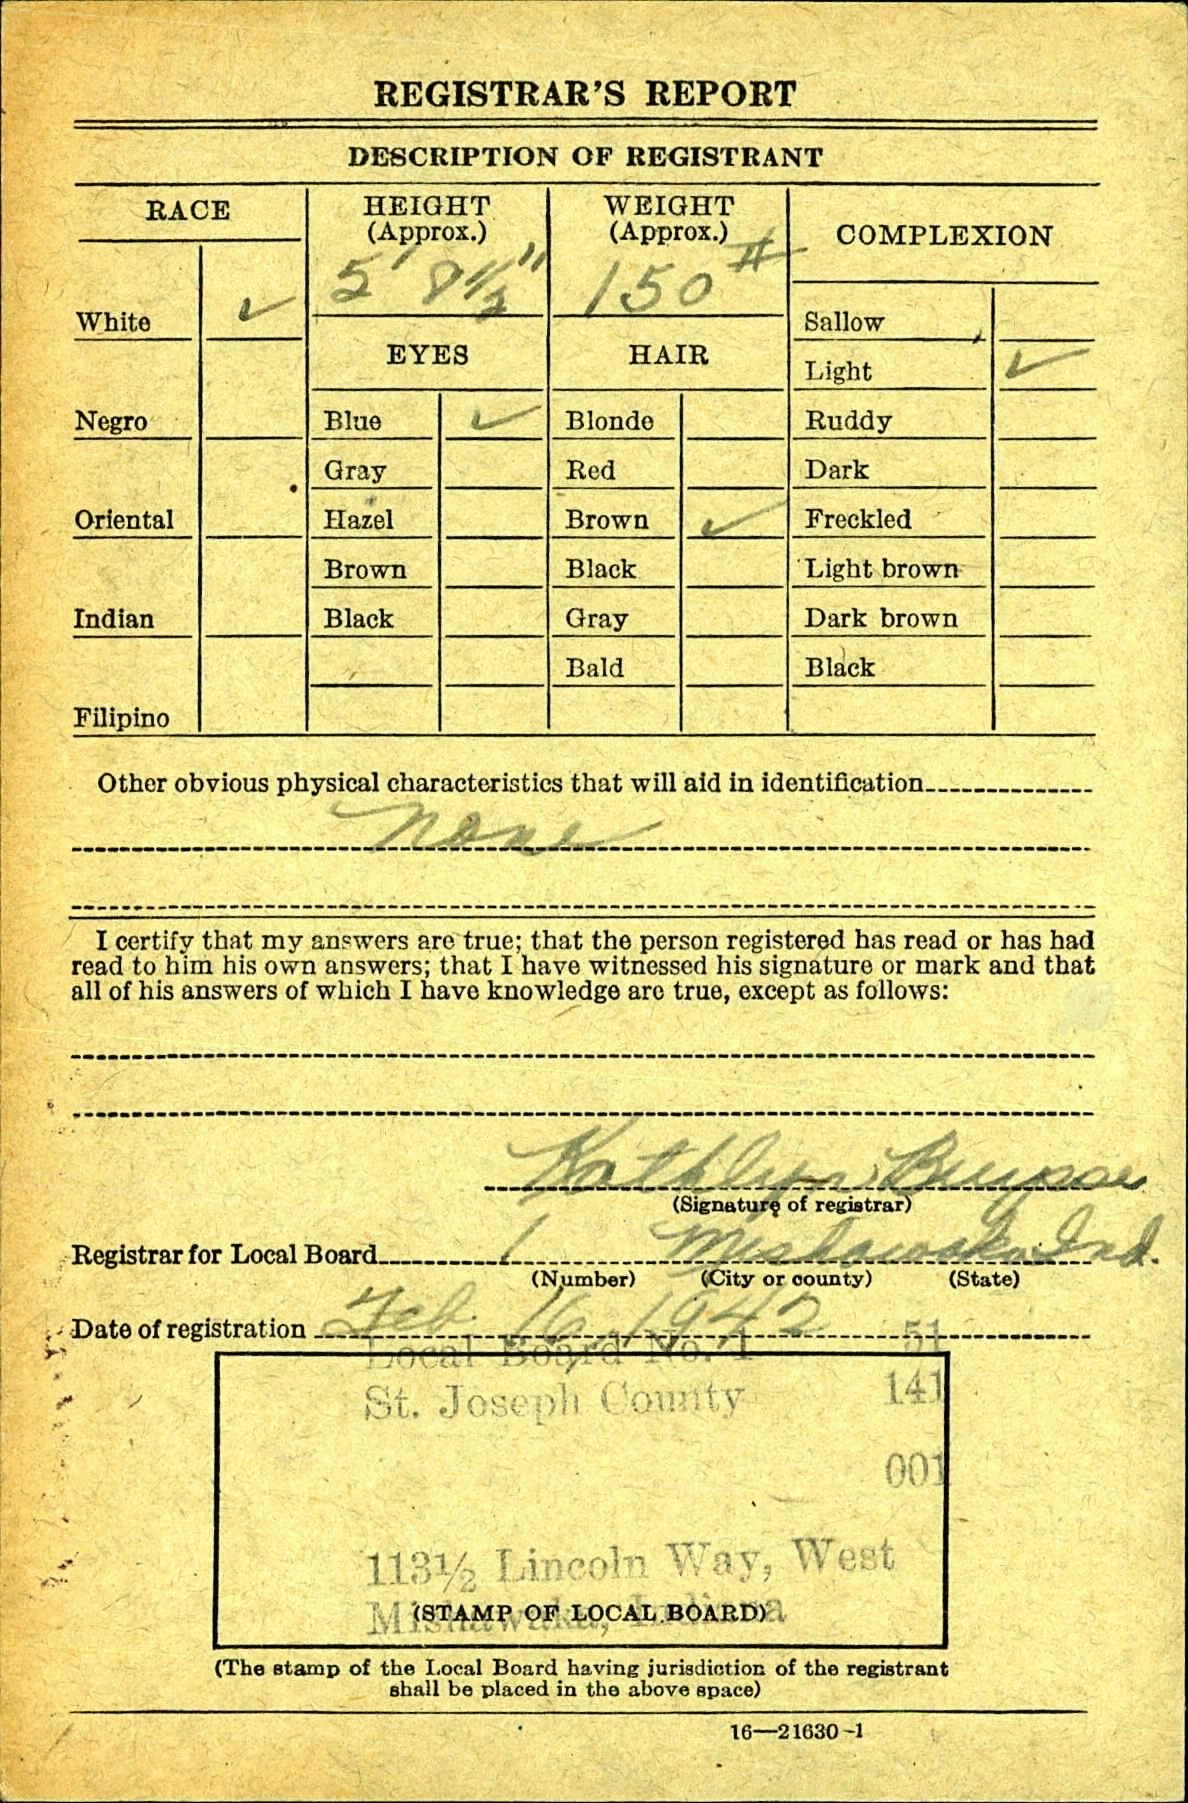 REGISTRAR'S REPORT
DESCRIPTION OF REGISTRANT
RACE
White ✓
Negro
Oriental
Indian
Filipino
HEIGHT
(Approx.)
5' 8½"
WEIGHT
(Approx.)
150 #
EYES
Blue ✓
Gray
Hazel
Brown
Black
HAIR
Blonde
Red
Brown ✓
Black
Gray
Bald
COMPLEXION
Sallow
Light ✓
Ruddy
Dark
Freckled
Light brown
Dark brown
Black
Other obvious physical characteristics that will aid in identification
none
I certify that my answers are true; that the person registered has read or has had
read to him his own answers; that I have witnessed his signature or mark and that
all of his answers of which I have knowledge are true, except as follows:
Kathlyn
(Signature of registrar)
Registrar for Local Board 1 Mishawaka Ind.
(Number) (City or county) (State)
Date of registration Feb 16, 1942
Local Board No. 1 51
St. Joseph County 141
001
113½ Lincoln Way, West
Mishawaka, Indiana
(STAMP OF LOCAL BOARD)
(The stamp of the Local Board having jurisdiction of the registrant
shall be placed in the above space)
16—21630-1